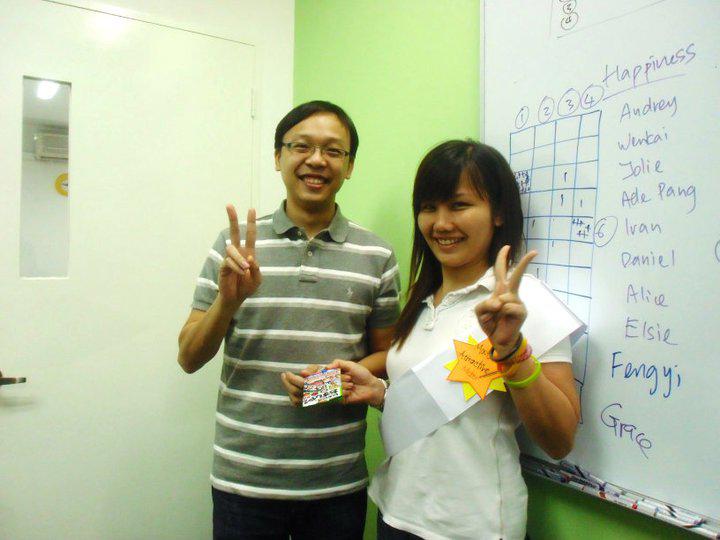 3
4
Happiness
1 2 3 4
Audrey
Wenkai
Jolie
Ade Pang
6 Ivan
Daniel
Alice
Elsie
Fengyi
Grace
Most
Attractive